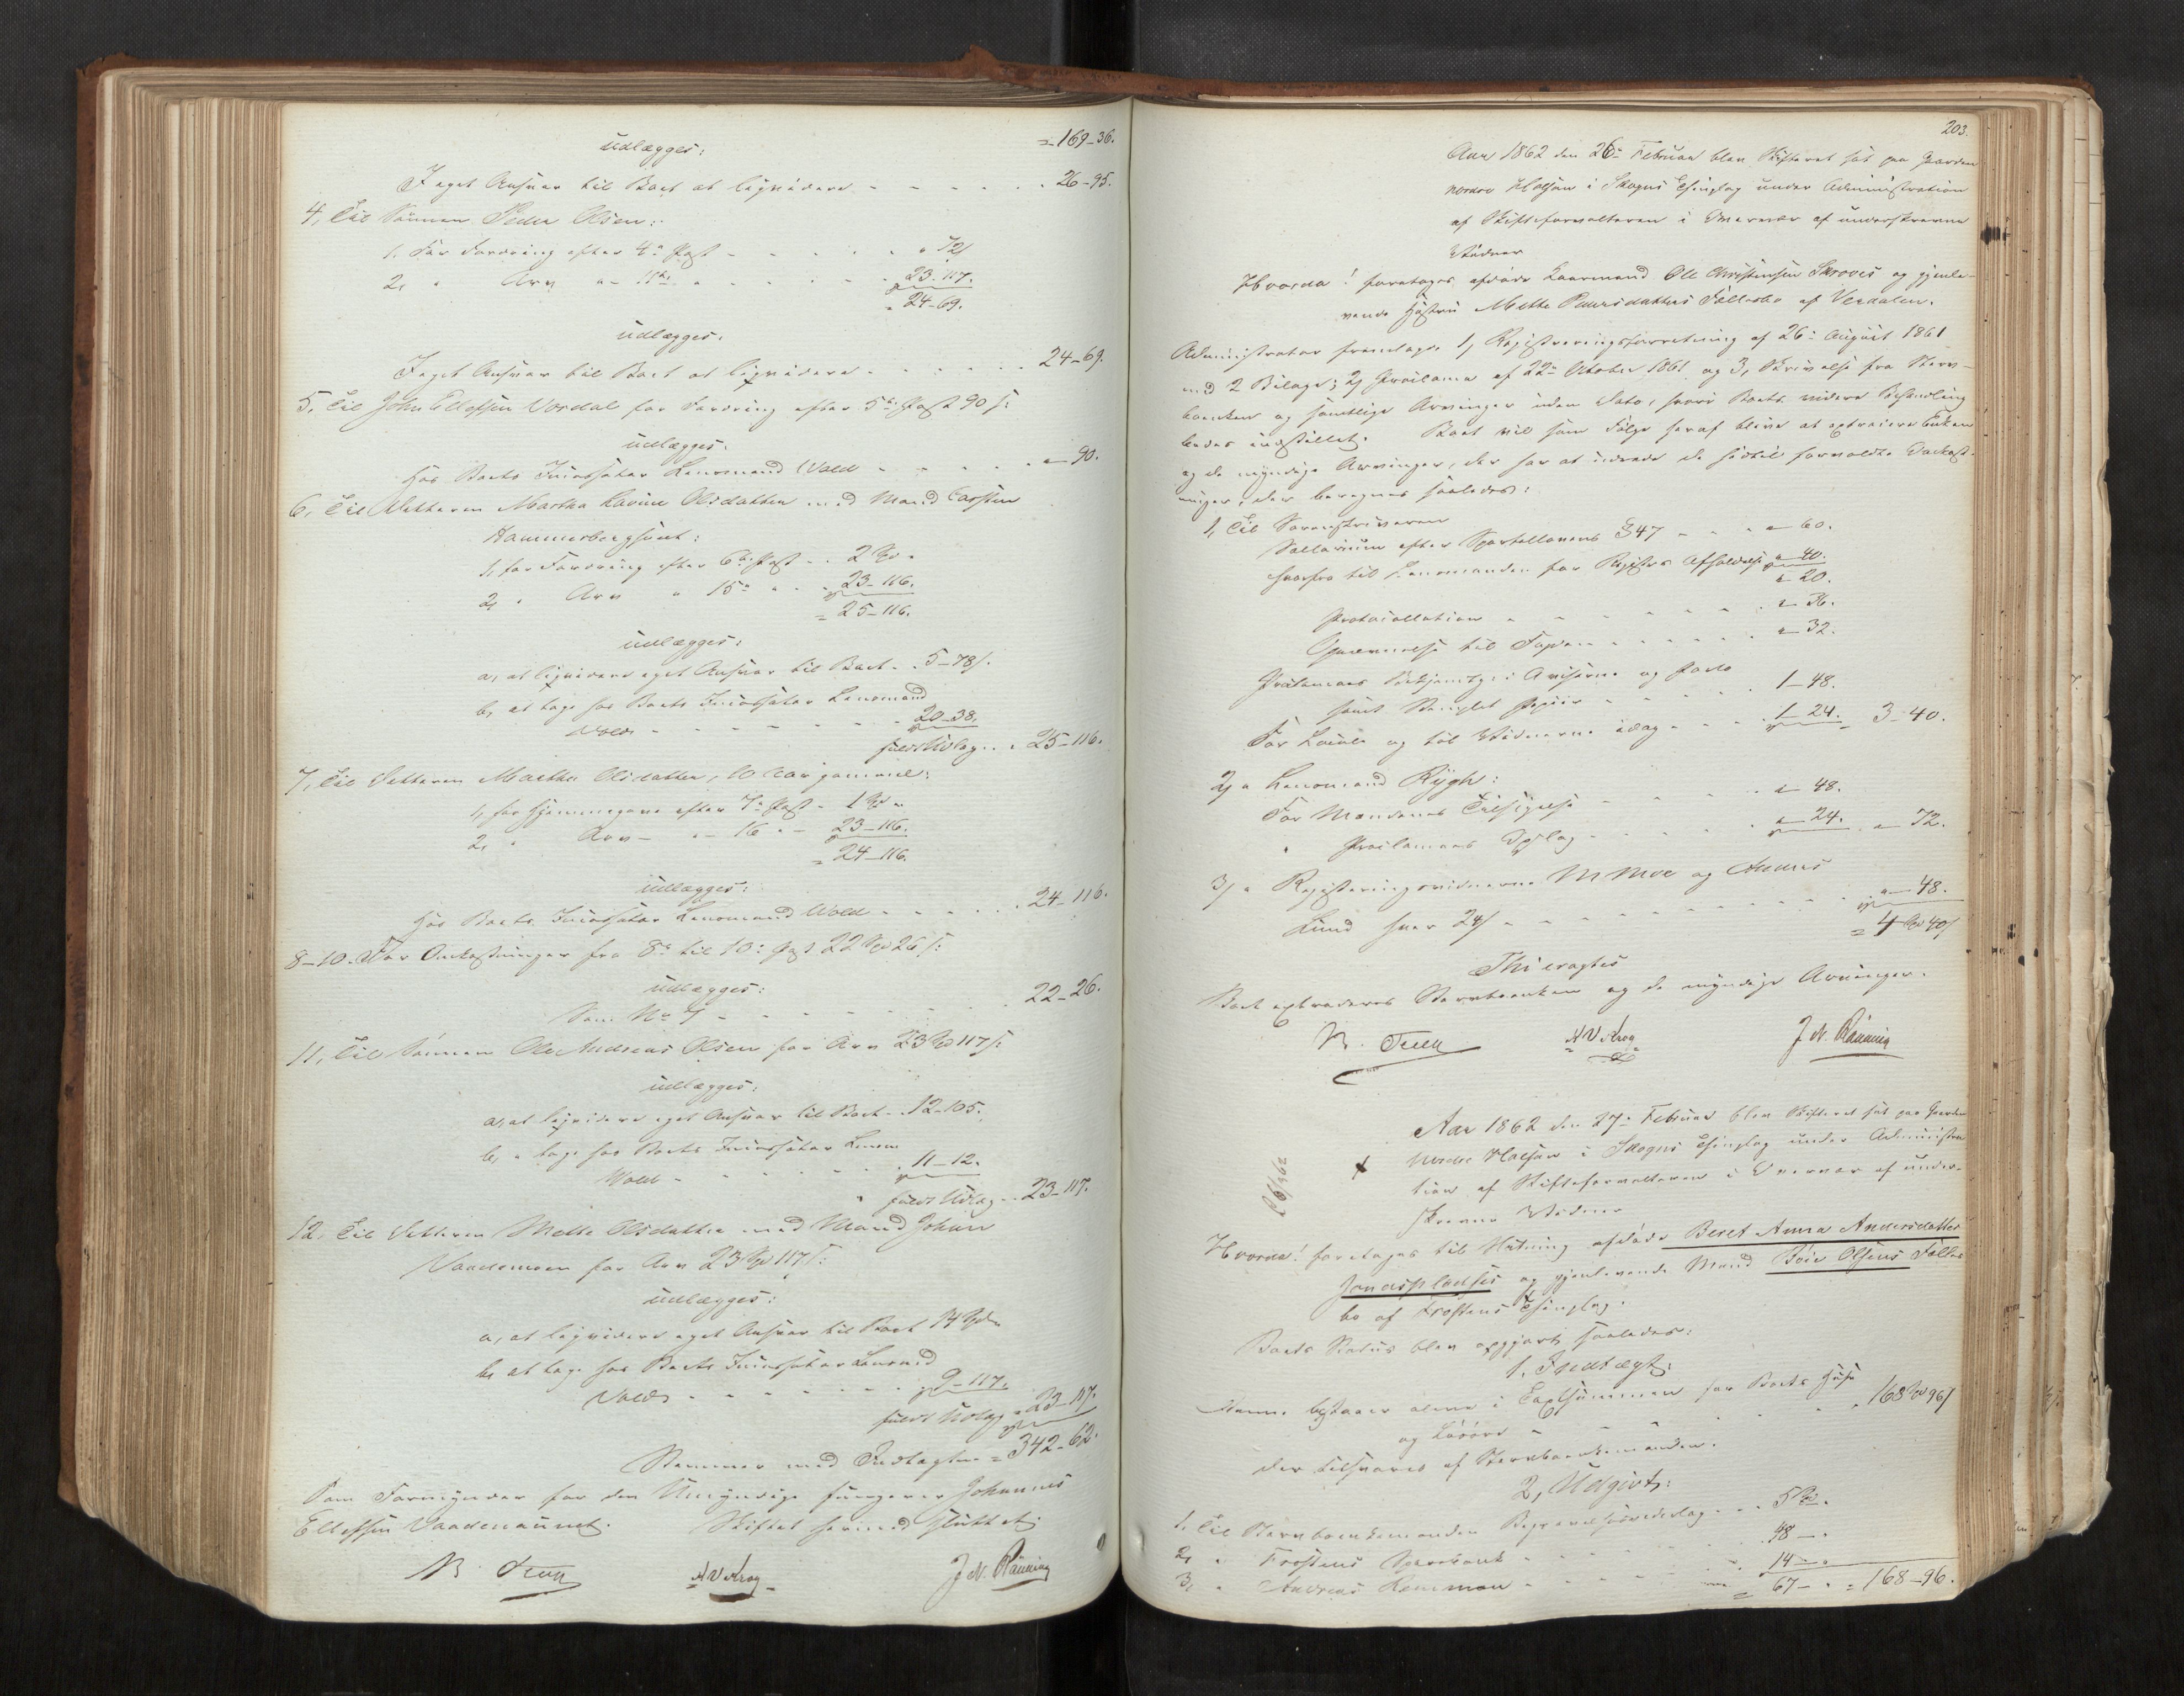 udlægges: = 169-36.
I eget Ansvar til Boet at liqvidere - - - - - - 26-95.
4, Til Sønnen Peder Olsen:
1. For Fordring efter 4de Post - - - - - " 72
2, " Arv " 11te " - - - - 23-117.
= 24-69.
udlægges.
I eget Ansvar til Boet at liqvidere - - - - - - 24-69.
5, Til John Ellefsen Vordal for Fordring efter 5te Post 90 s:
udlægges.
Hos Boets Incassator Lensmand Wold - - - - - " - 90.
6, Til Datteren Martha Lovise Olsdatter med Mand Carsten
Hammersbergsaunt:
1, for Fordring efter 6te Post - - 2 Spd "
2, " Arv " 15de - - 23-116.
= 25-116.
udlægges:
a, at liqvidere eget Ansvar til Boet - - 5-78 s.
b, at tage hos Boets Incassator Lensmand
Wold - - - - - - - 20-38.
fuldt Udlæg - - 25-116.
7, Til Datteren Martha Olsdatter, 10 Aar gammel:
1, for Hjemmegave efter 7de Post - 1 Spd "
2, " Arv - " - 16 " - 23-116.
= 24-116.
udlægges:
Hos Boets Incassator Lensmand Wold - - - - - 24-116.
8-10. For Omkostninger fra 8de til 10de Post 22 Spd 26 s:
udlægges:
Som No 7 - - - - - - - 22-26.
11, Til Sønnen Ole Andreas Olsen for Arv 23 Spd 117 s:
udlægges:
a, at liqvidere eget Ansvar til Boet - - 12-105.
b, " tage hos Boets Incassator Lensm
Wold - - - - - - 11-12.
" fuldt Udlæg - - 23-117.
12, Til Datteren Mette Olsdatter med Mand Johan
Vaademoen for Arv 23 Spd 117 s:
udlægges:
a, at liqvidere eget Ansvar til Boet 14 Spd "
b, at tage hos Boets Incassator Lensmd
Wold - - - - - - - 9-117.
fuldt Udlæg = 23-117.
Stemmer med Indtægten = 342-62.
Som Formynder for den Umyndige fungerer Johannes
Ellefsen Vaadenaunet. Skiftet hermed sluttet.
N. Teen A V Krog J. N. Rønning
203.
Aar 1862 den 26de Februar blev Skifteret sat paa Gaarden
nordre Halsan i Skogns Thinglag under Administration
af Skifteforvalteren i Overvær af underskrevne
Vidner
Hvorda! foretoges afdøde Kaarmand Ole Christensen Skroves og gjenle-
vende Hustru Mette Pedersdatters Fællesbo af Verdalen.
Administrator fremlagde 1, Registreringsforretning af 26de August 1861
med 2 Bilage; 2, Proclama af 22de Oktober 1861 og 3, Skrivelse fra Sterv-
boenken og samtlige Arvinger uden Dato, hvori Boets videre Behandling
bedes indstillet. Boet vil som Følge heraf blive at extradere Enken
og de myndige Arvinger, der har at udrede de hidtil forvoldte Omkost-
ninger, der beregnes saaledes:
1, Til Sorenskriveren
Sallarium efter Sportellovens § 47 - - - " - 60.
herfra til Lensmanden for Registr. Afholdelse " 40.
" - 20.
Protocollation - - - - - - - " - 36.
Gjennemsyn til Dagen - - - - - - " - 32.
Proclamaets Bekjendtgj. i Aviserne og Porto
samt Stemplet Papiir - - - - - 1-48.
For Locale og til Vidnerne idag - - - - 1-24. 3-40.
2, " Lensmand Rygh:
For Mændenes Tilsigelse - - - - - " - 48.
" Proclamaets Opslag - - - - - " - 24. " - 72.
3, " Registreringsvidnerne M Moe og Anders
Lund hver 24 s - - - - - - - - - " - 48.
= 4 Spd 40 s
Thi eragtes
Boet extraderes Stervboenken og de myndige Arvinger.
N. Teen A V Krog J. N. Rønning
Aar 1862 den 27de Februar blev Skifteret sat paa Gaarden
nordre Halsan i Skogns Thinglag under Administra
tion af Skifteforvalteren i Overvær af under-
skrevne Vidner
Hvorda! foretoges til Slutning afdøde Beret Anna Andersdatter
Jonaspladses og gjenlevende Mand Boie Olsens Fælles
bo af Frostens Thinglag.
Boets Status blev opgjort saaledes:
1, Indtægt:
Denne bestaaer alene i Taxtsummen for Boets Huse
og Løsøre - - - - - - - - 168 Spd 96 s
der tilsvares af Stervboenkemanden.
2, Udgivt:
1. Til Stervboenkemanden Begravelsesvederlag - - 5 Spd "
2, " Frostens Sparebank - - - - - - 48 - "
3, " Andreas Reinmoen - - - - - - 14 - "
= 67 - " = 168-96.